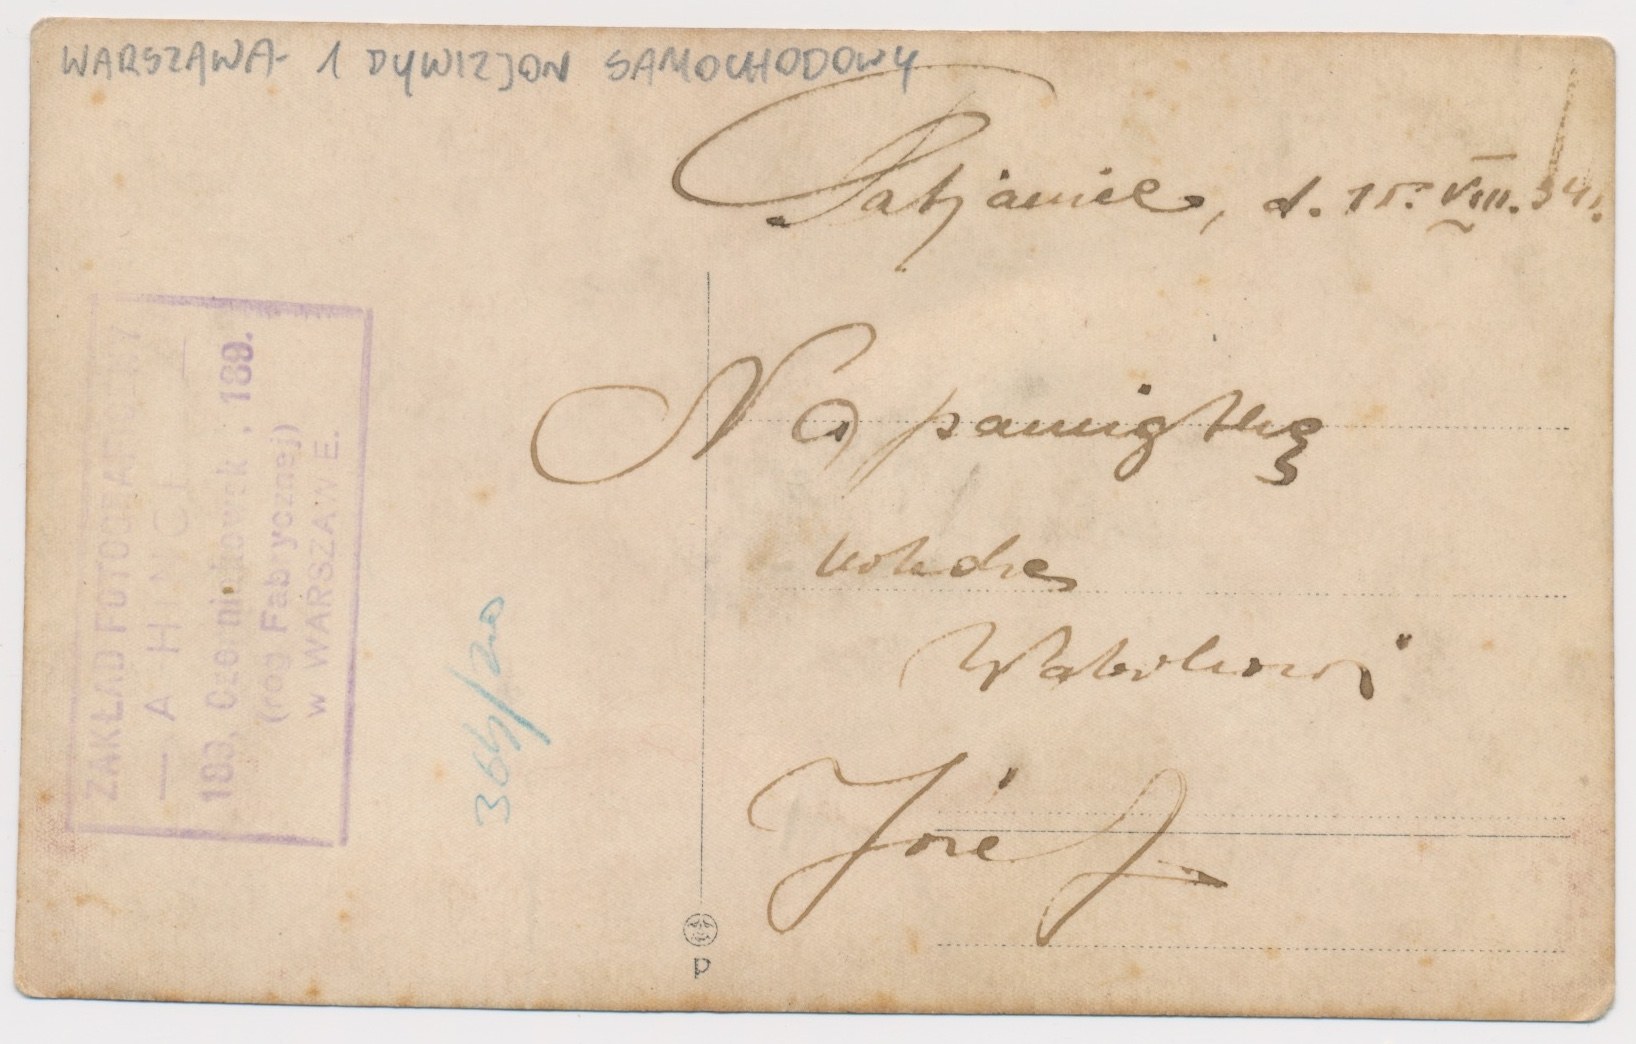 WARSZAWA- 1 DYWIZJON SAMOCHODOWY
Pabjanice, d. 15. VIII. 34r.
Na pamiątkę
Józef
ZAKŁAD FOTOGRAFICZNY
183, Czerniakowsk. 189.
(róg Fabrycznej)
w WARSZAWIE.
P